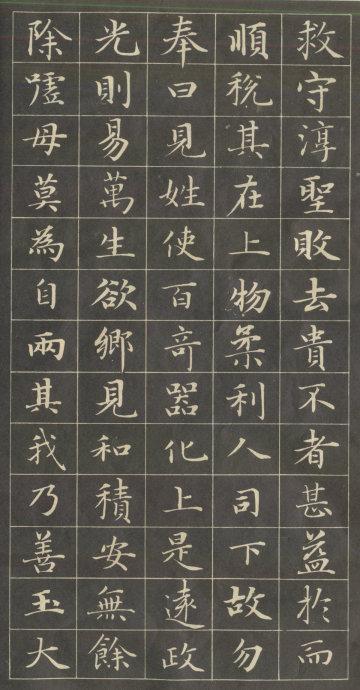 救守淳聖敗去貴不者甚益於而
順稅其在上物柔利人司下故勿
奉曰見姓使百奇器化上是遠政
光則易萬生欲鄉見和積安無餘
除毋莫為自兩其我乃善玉大